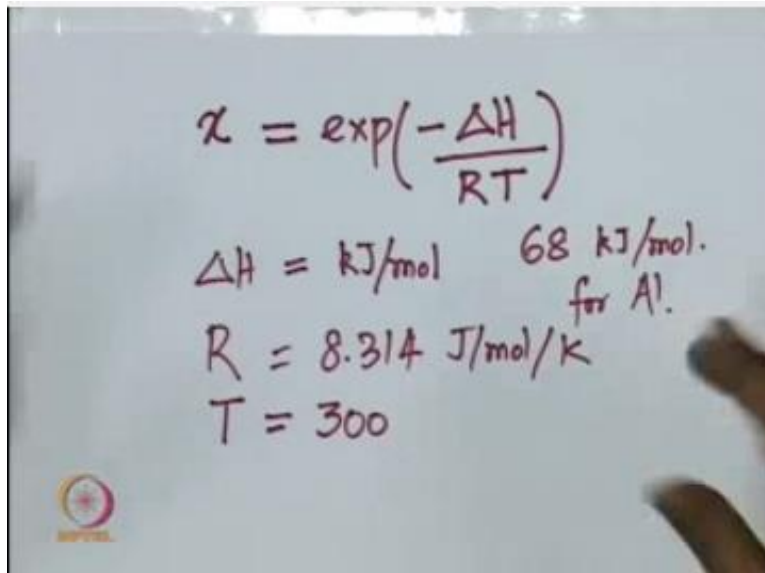 x = exp(-ΔH/RT)
ΔH = kJ/mol 68 kJ/mol.
for Al.
R = 8.314 J/mol/K
T = 300
NPTEL